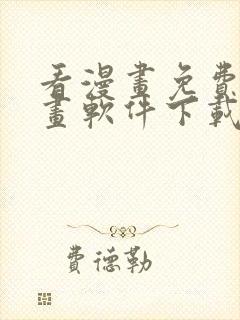 看漫畫免費
畫軟件下載
費德勒